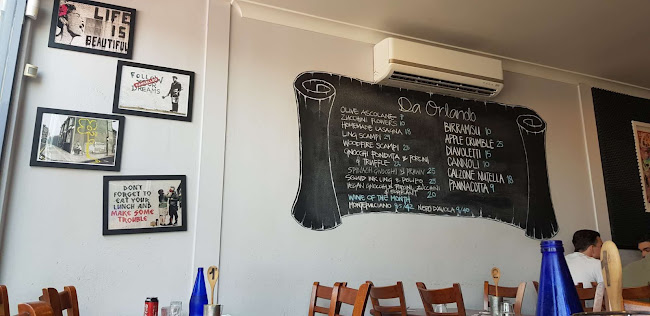 LIFE
IS
BEAUTIFUL
FOLLOW
DREAMS
DON'T
FORGET TO
EAT YOUR
LUNCH AND
MAKE SOME
TROUBLE
Da Orlando
OLIVE ASCOLANE 9
ZUCCHINI FLOWERS 10
HOMEMADE LASAGNA 18
LING SCAMPI 29
WOODFIRE SCAMPI 25
GNOCCHI FONDUTA & PORCINI
& TRUFFLE 25
SPINACH GNOCCHI & PRAWN 25
SQUID INK LING & POLIPO 25
VEGAN GNOCCHI & PORCINI, ZUCCHINI
20
WINE OF THE MONTH
MONTEPULCIANO 8.5/42 NERO D'AVOLA 9/40
BIRRAMISU 10
APPLE CRUMBLE 25
DIAVOLETTI 15
CANNOLI 10
CALZONE NUTELLA 18
PANNACOTTA 9